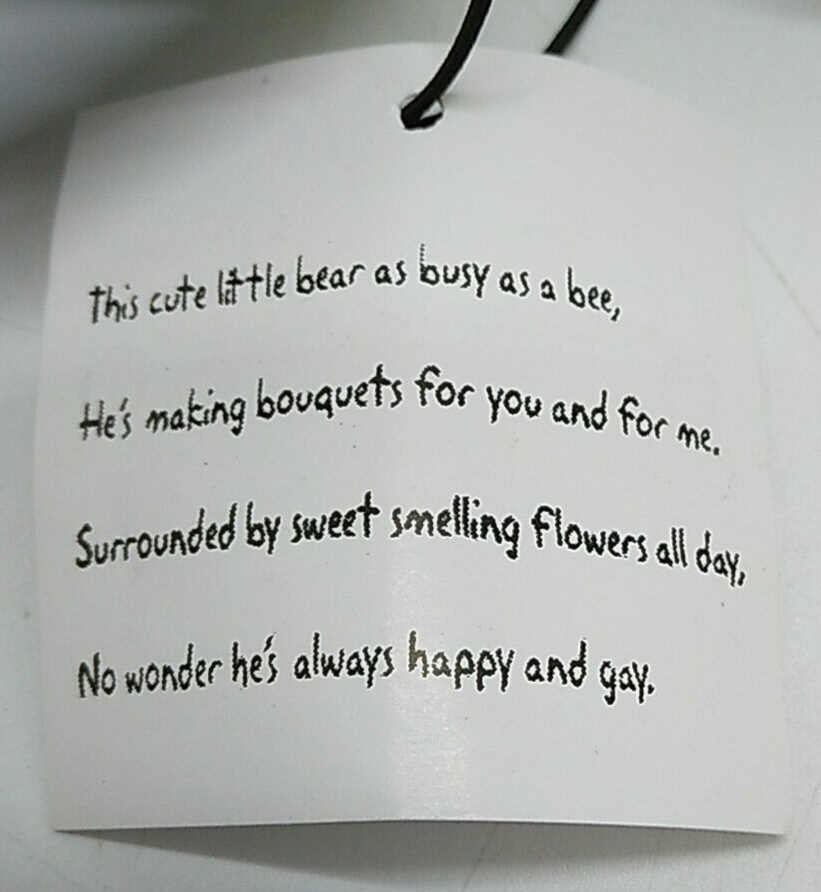 This cute little bear as busy as a bee,
He's making bouquets for you and for me.
Surrounded by sweet smelling flowers all day,
No wonder he's always happy and gay.